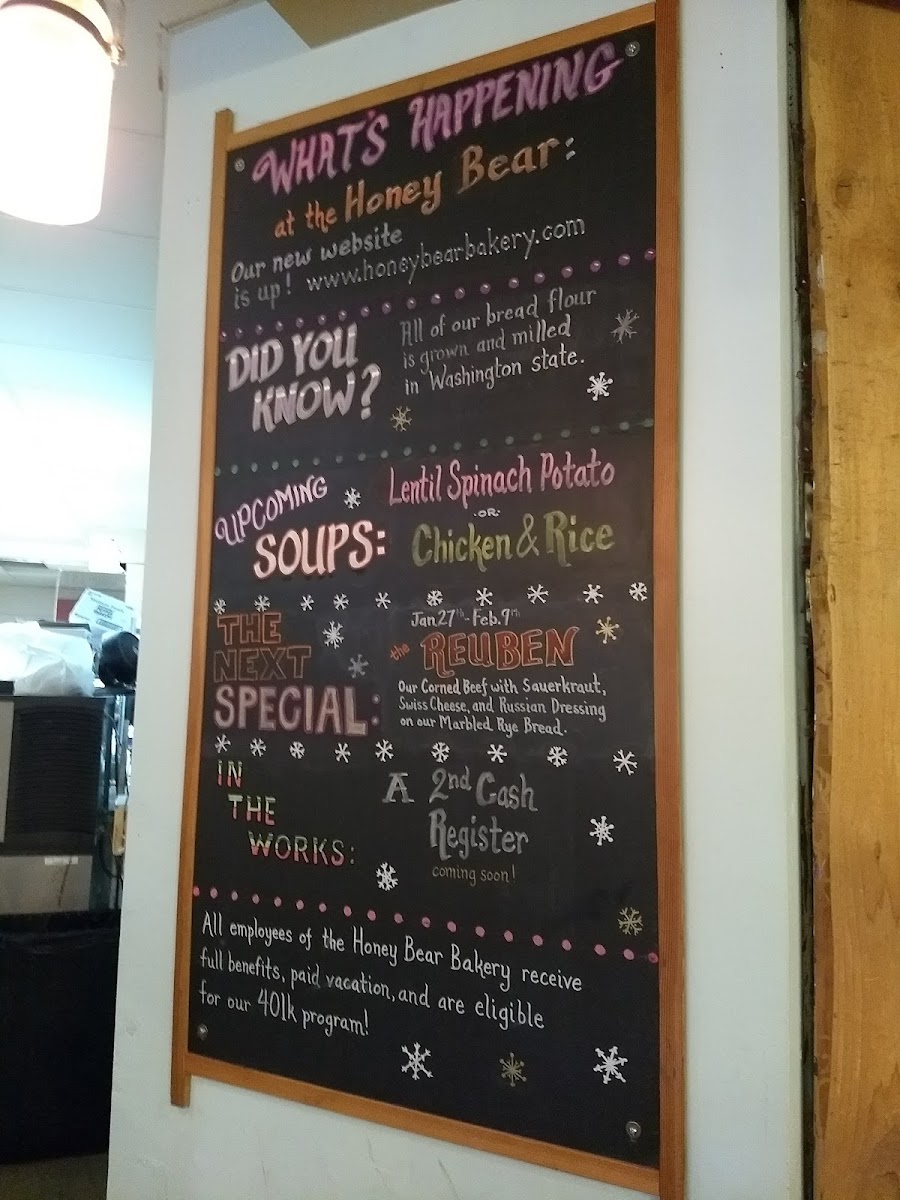 WHAT'S HAPPENING
at the Honey Bear:
Our new website
is up! www.honeybearbakery.com
DID YOU
KNOW?
All of our bread flour
is grown and milled
in Washington state.
UPCOMING
SOUPS:
Lentil Spinach Potato
-OR-
Chicken & Rice
THE
NEXT
SPECIAL:
Jan 27th - Feb. 9th
the REUBEN
Our Corned Beef with Sauerkraut,
Swiss Cheese, and Russian Dressing
on our Marbled Rye Bread.
IN
THE
WORKS:
A 2nd Cash
Register
coming soon!
All employees of the Honey Bear Bakery receive
full benefits, paid vacation, and are eligible
for our 401k program!